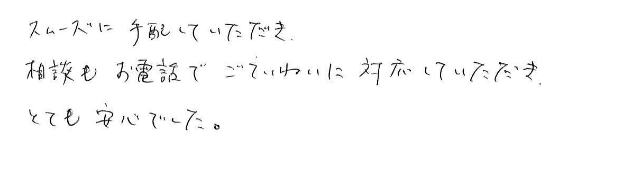 スムーズに手配していただき、
相談もお電話でごていねいに対応していただき、
とても安心でした。